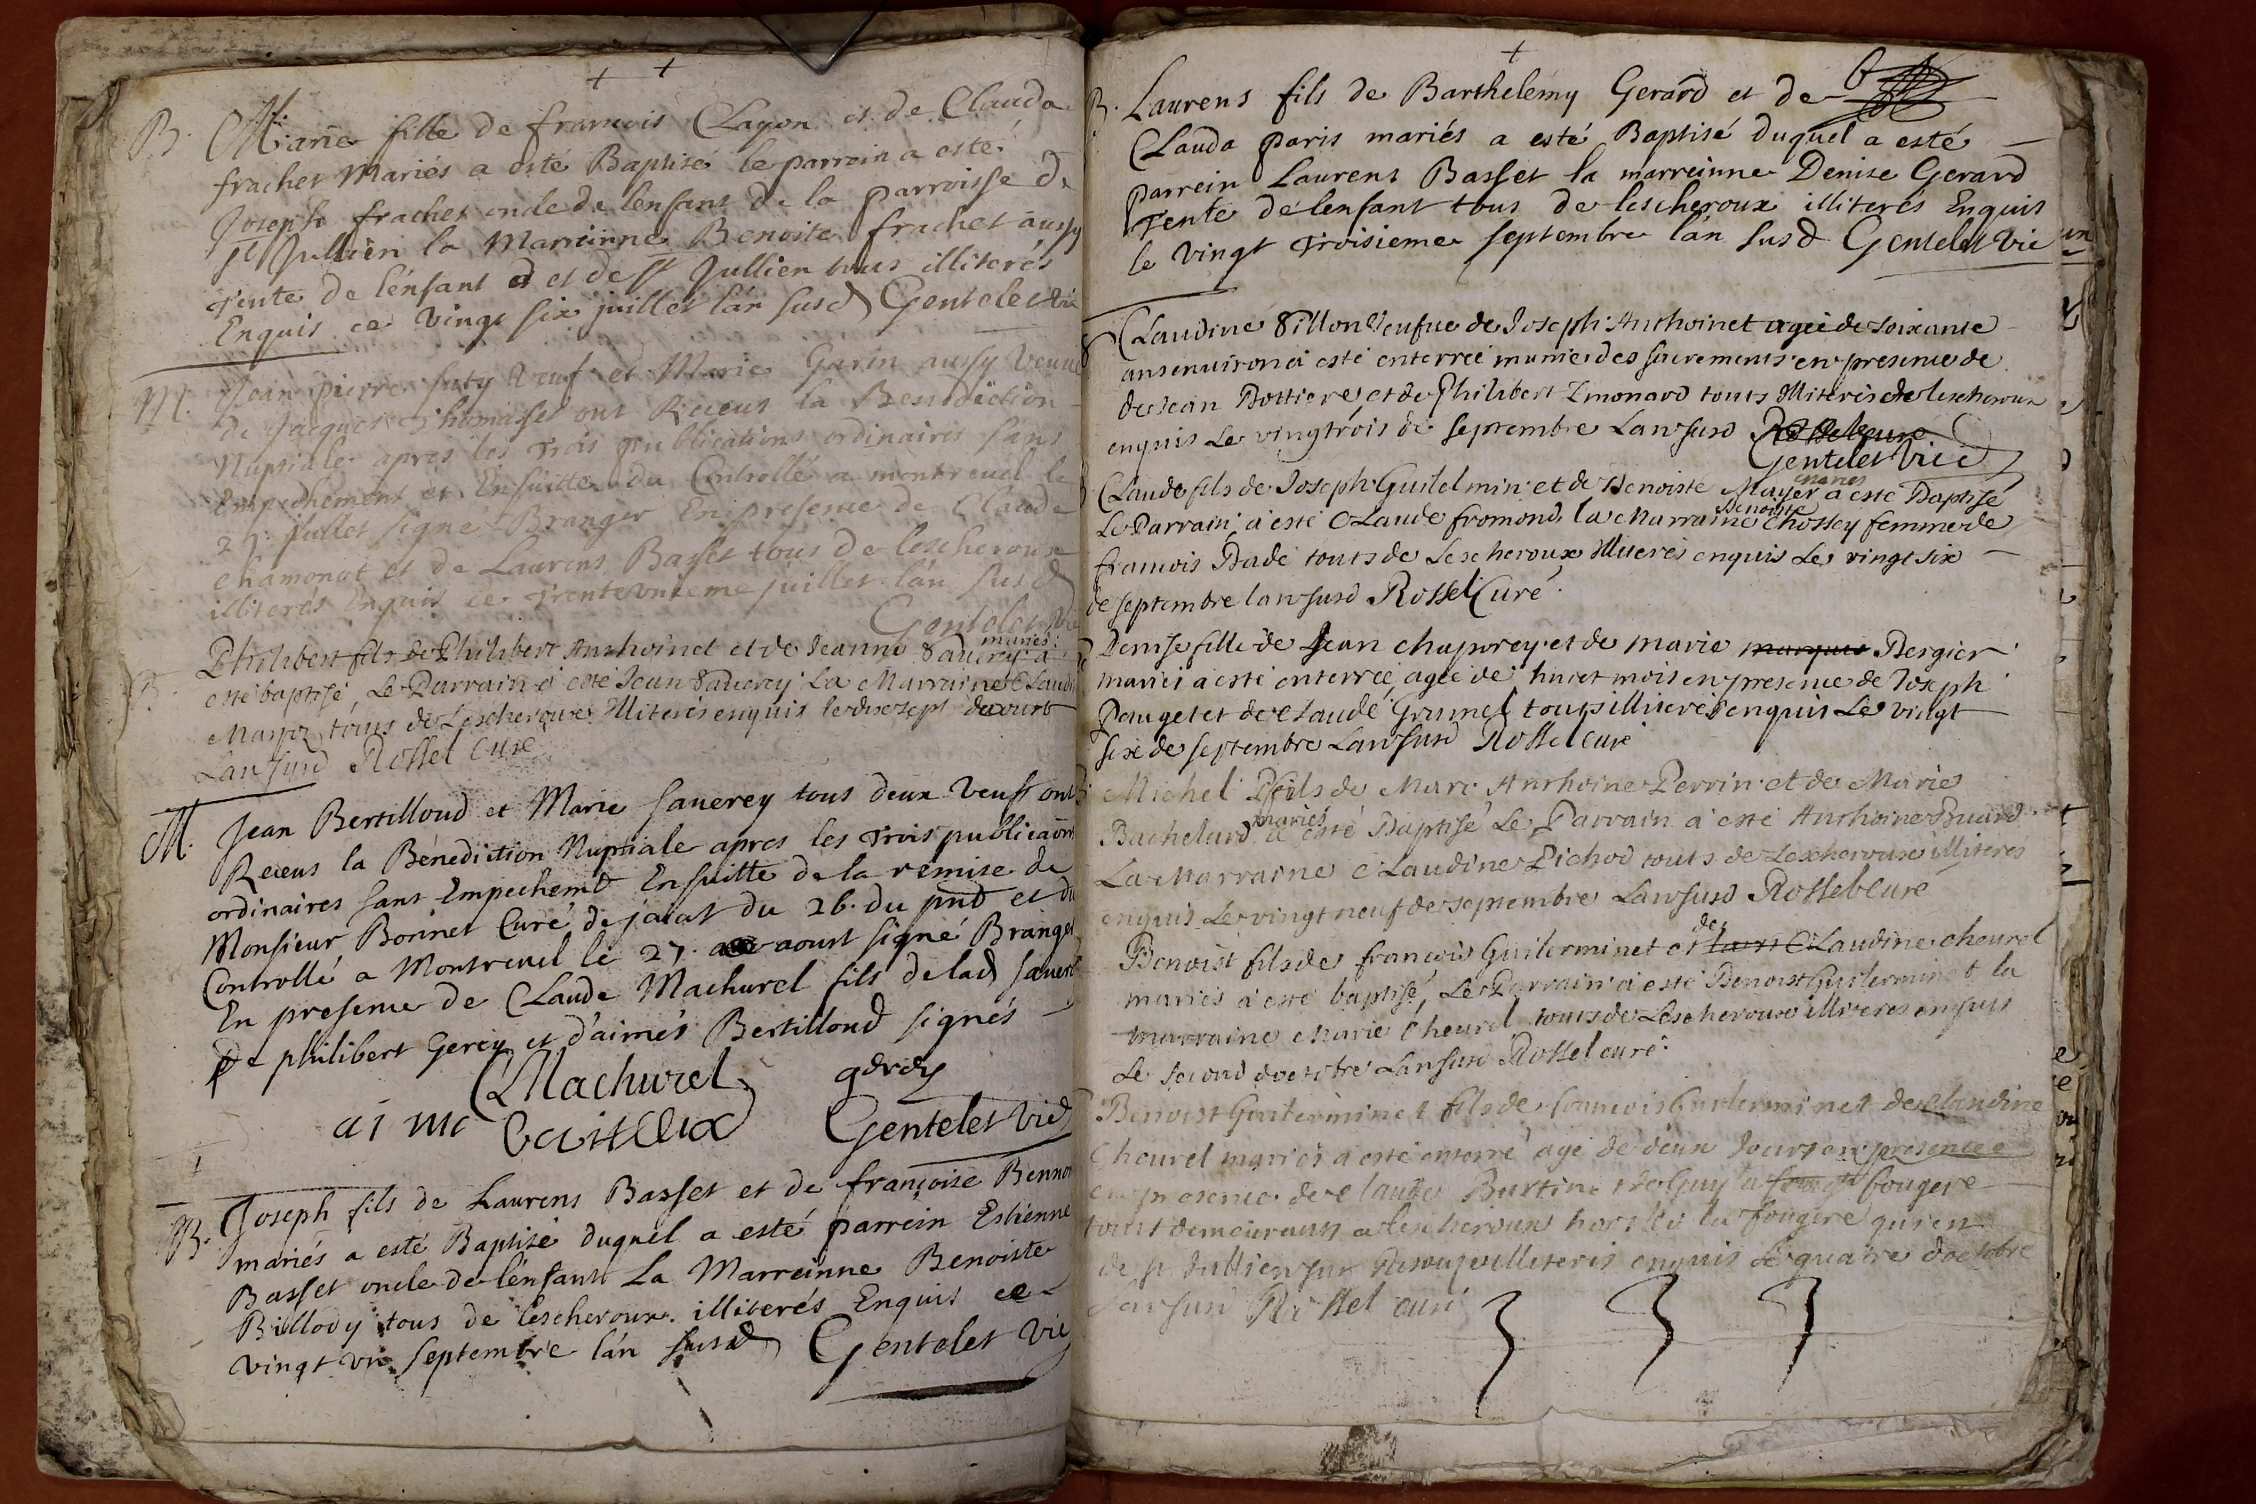 B. Marie fille de francois Clayon et de Clauda
frachet Mariés a esté Baptisé le parrein a esté
Joseph frachet oncle de lenfant de la parroisse de
st Jullien la Marreinne Benoite frachet aussy
Tente de lénfant et de st Jullien tous illiterés
Enquis ce vingt six juillet lán susd Gentelet vic
M. Jean pierre futy veuf et Marie Garin aussy veuve
de Jacques Thomasset ont Receus la Benediction
Nuptiale apres les Trois publications ordinaires sans
Empechement et Ensuitte du Controllé a montreuel le
27. juillet signé Branger En presence de Claude
Chamonat et de Laurens Basset tous de lescheroux
illiterés Enquis ce Trente unieme juillet lán susd
Gentelet vic
mariés
B. Philibert fils de Philibert Anthoinet et de Jeanne Sauerey a
esté baptisé, Le Parrain a esté Jean Sauerey La Marraine Claudi
Mayoz touts de Lescheroux Illiteres enquis le dixsept daoust
Lan susd Rossel Curé
M. Jean Bertilloud et Marie sauerey tous deux veufs ont
Receus la Bénediction Nuptiale apres les Trois publicaõns
ordinaires sans Empechemt Ensuitte de la remise de
Monsieur Bonnet Curé de jaiat du 26. du pnt et du
Controllé a Montreuel le 27. aoust signé Branger
En presence de Claude Machurel fils de lad sauerey
de philibert Gerey et d'aimés Bertilloud signés
CMachurel gerey
aimé bertilloux Gentelet Vic
B. Joseph fils de Laurens Basset et de françoise Bennon
mariés a esté Baptisé duquel a esté parrein Estienne
Basset oncle de lénfant La Marreinne Benoiste
Billody tous de lescheroux illiterés Enquis ce
vingt un septembre lán susd Gentelet vic
B. Laurens fils de Barthelémy Gerard et de
Clauda paris mariés a esté Baptisé duquel a esté
parrein Laurens Basset la marreinne Denise Gerard
Tente de lenfant tous de lescheroux illiterés Enquis
le vingt Troisieme septembre lán susd Gentelet Vic
Claudine Sillon Veufue de Joseph Anthoinet agée de soixante
ans enuiron a esté enterrée munie des sacrements en presence de
de Jean Bottiere, et de Philibert Emonard touts Illiterés de lescheroux
enquis Le vingtrois de septembre Lan susd Rossel Cure
Gentelet Vic
mariés
Claude fils de Joseph Guilelmin et de Benoiste Mayer a esté Baptisé
Benoiste
Le Parrain, a esté Claude fromond, la Marraine Chossey femme de
francois Badé touts de Lescheroux Illiterés enquis Le vingt six
de septembre lan susd Rossel Curé
Denise fille de Jean chaparey et de marie marquis Bergier
mariés a esté enterrée, agée de huict mois en presence de Joseph
Pauget et de Claude Grunel, touts illiterés enquis Le vingt
six de septembre Lan susd Rossel curé
Michel fils de Marc Anthoine Perrin et de Marie
mariés
Bachelard a esté Baptisé Le Parrain a esté Anthoine Buard
La Marraine Claudine Pichod touts de Lescheroux illiteres
enquis Le vingt neuf de septembre Lan susd Rossel curé
de
Benoist fils de francois Guilerminet et Claudine cheurel
mariés a esté baptisé, Le Parrain a esté Benoist Guilerminet la
marraine Marie Cheurel touts de Lescheroux illiteres enquis
Le second doctobre Lan susd Rossel curé
Benoist Guilerminet fils de francois Guilerminet de claudine
Cheurel mariés a esté enterré agé de deux Jours en presence
en presence de claude Burtin de Guy la fougere
touts demeurants a Lescheroux hors le la fougere qui en
de st Jullien sur Resouze illiterés enquis le quatre doctobre
Lan susd Rossel curé